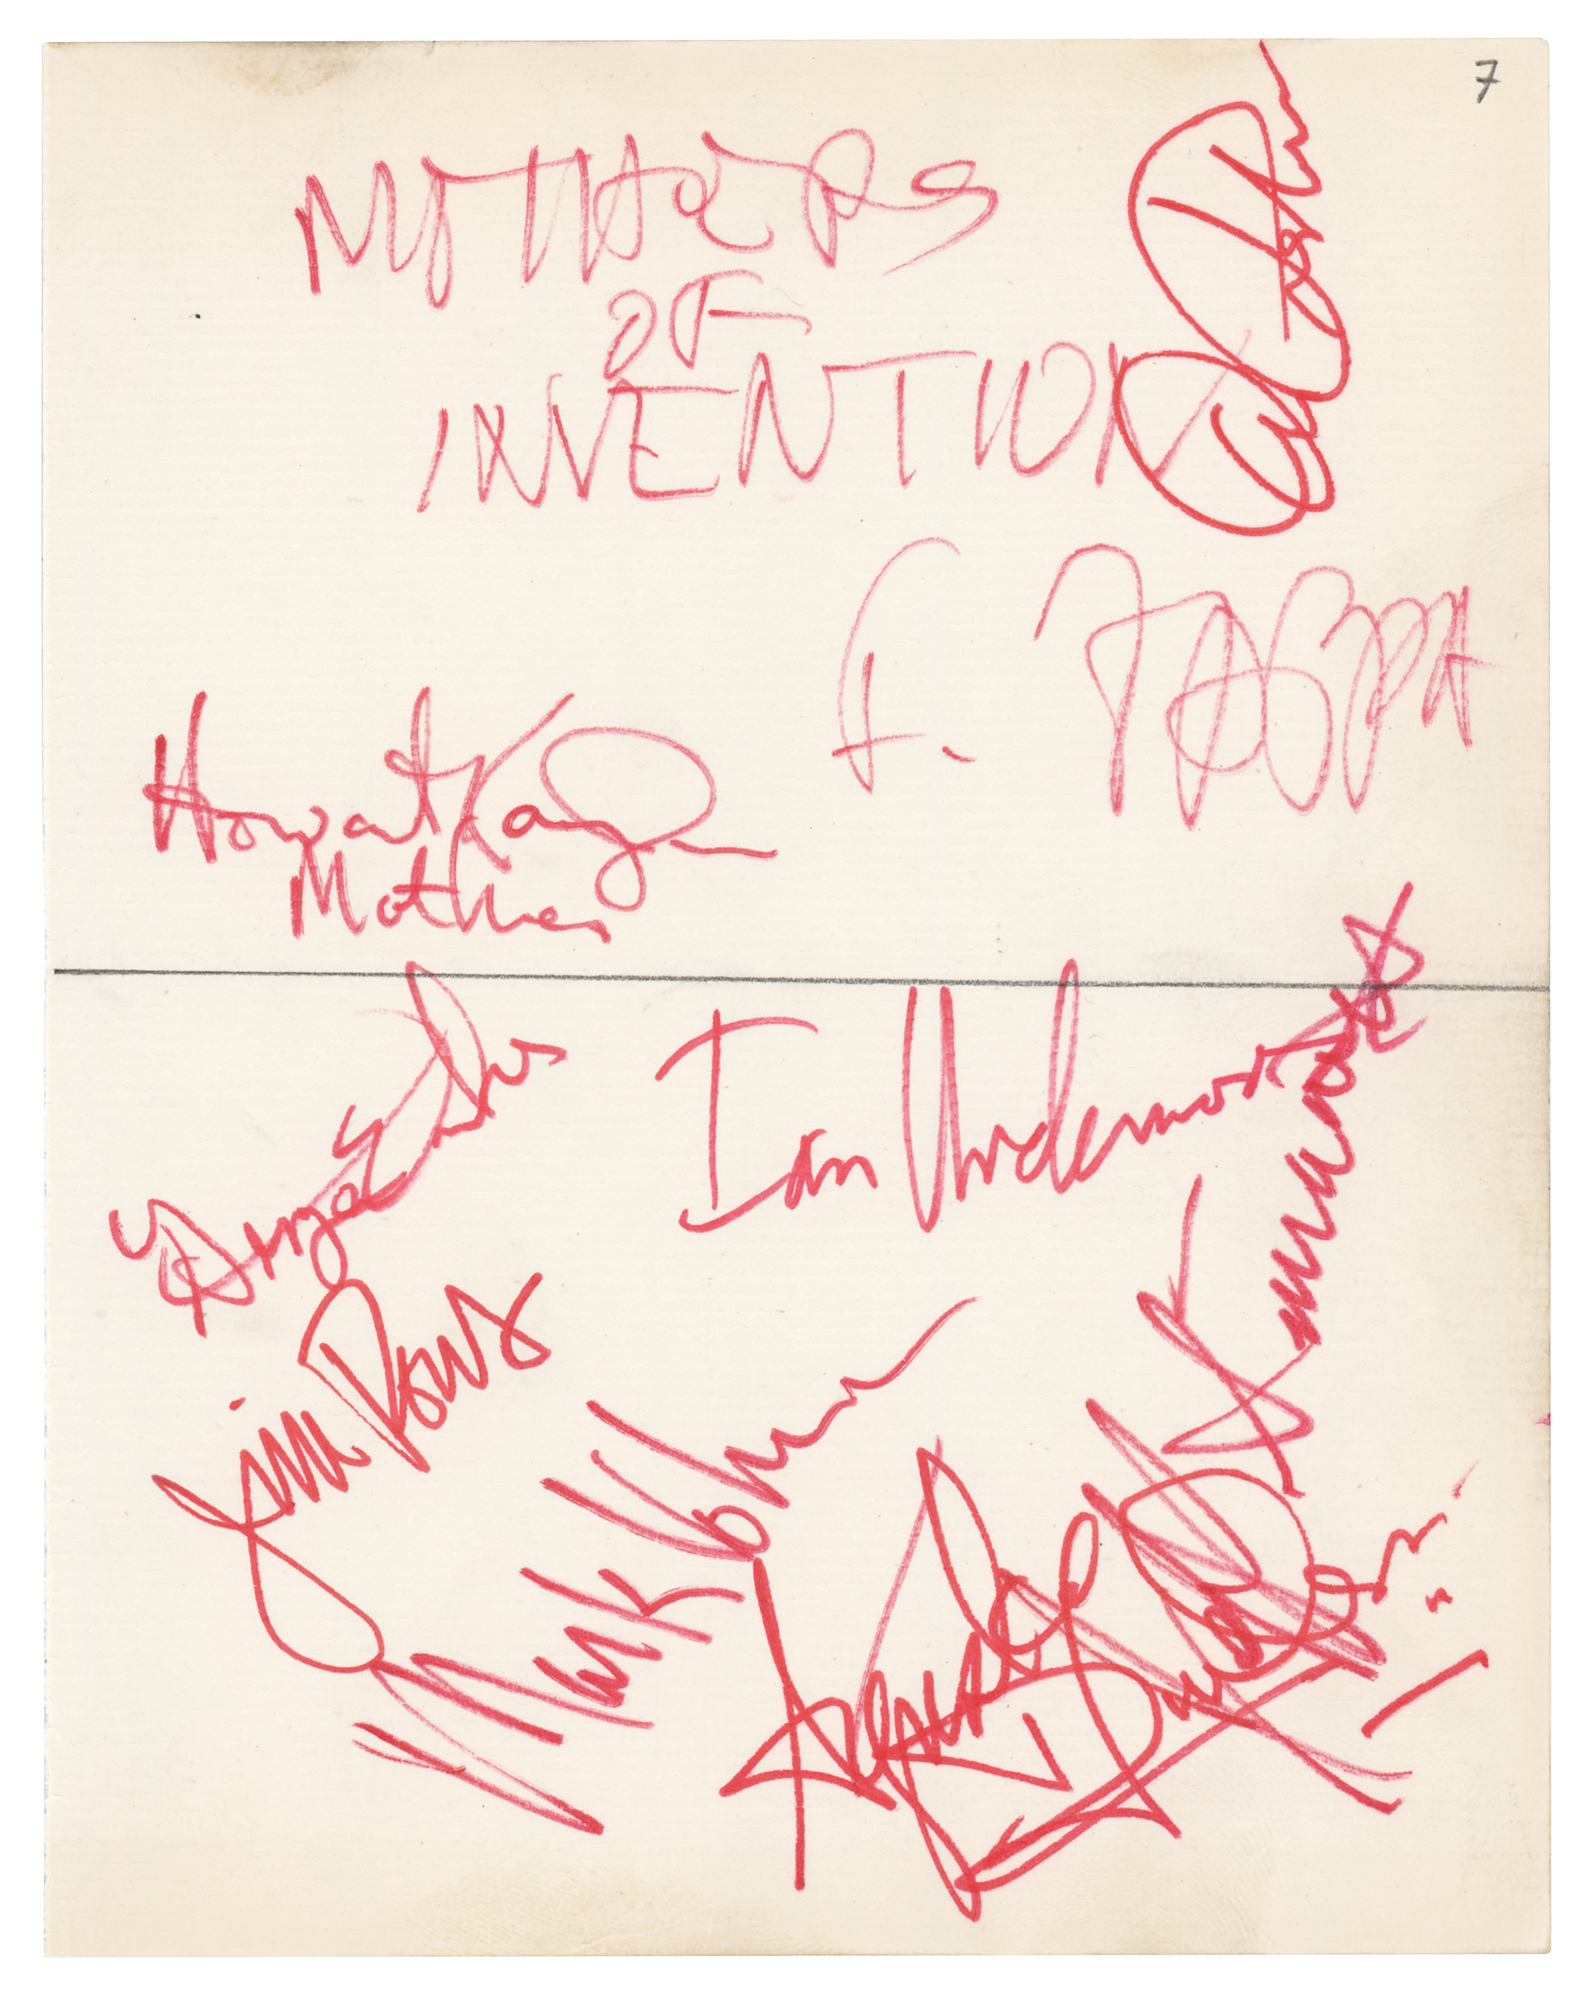 7
MOTHERS
OF
INVENTION
F. ZAPPA
Howard Kaylan
Mother
Ian Underwood
Jim Pons
Mark Volman
Aynsley Dunbar